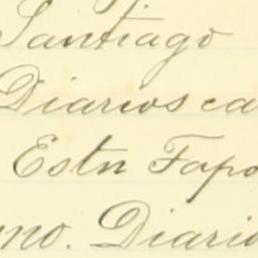 Santiago
Diarios ca
Estn Fapo
no. Diario